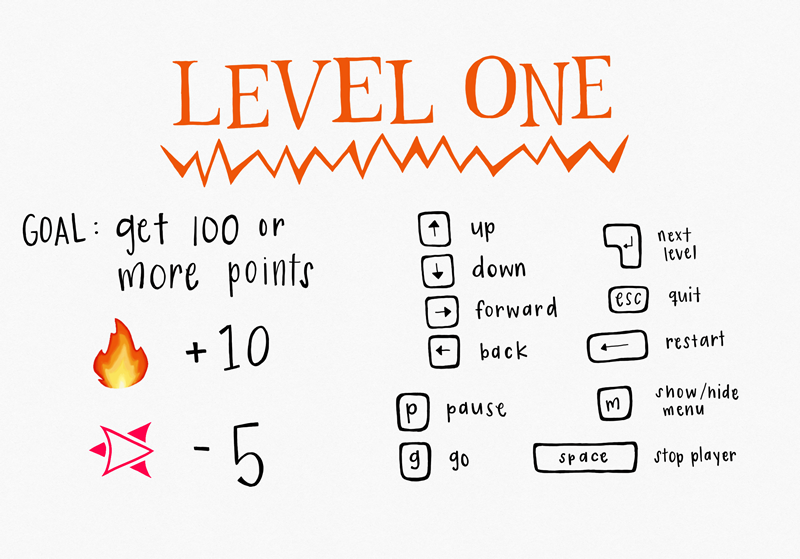 LEVEL ONE
GOAL: get 100 or
more points
+10
-5
↑ up
↓ down
→ forward
← back
p pause
g go
↵ next
level
esc quit
← restart
m show/hide
menu
space stop player